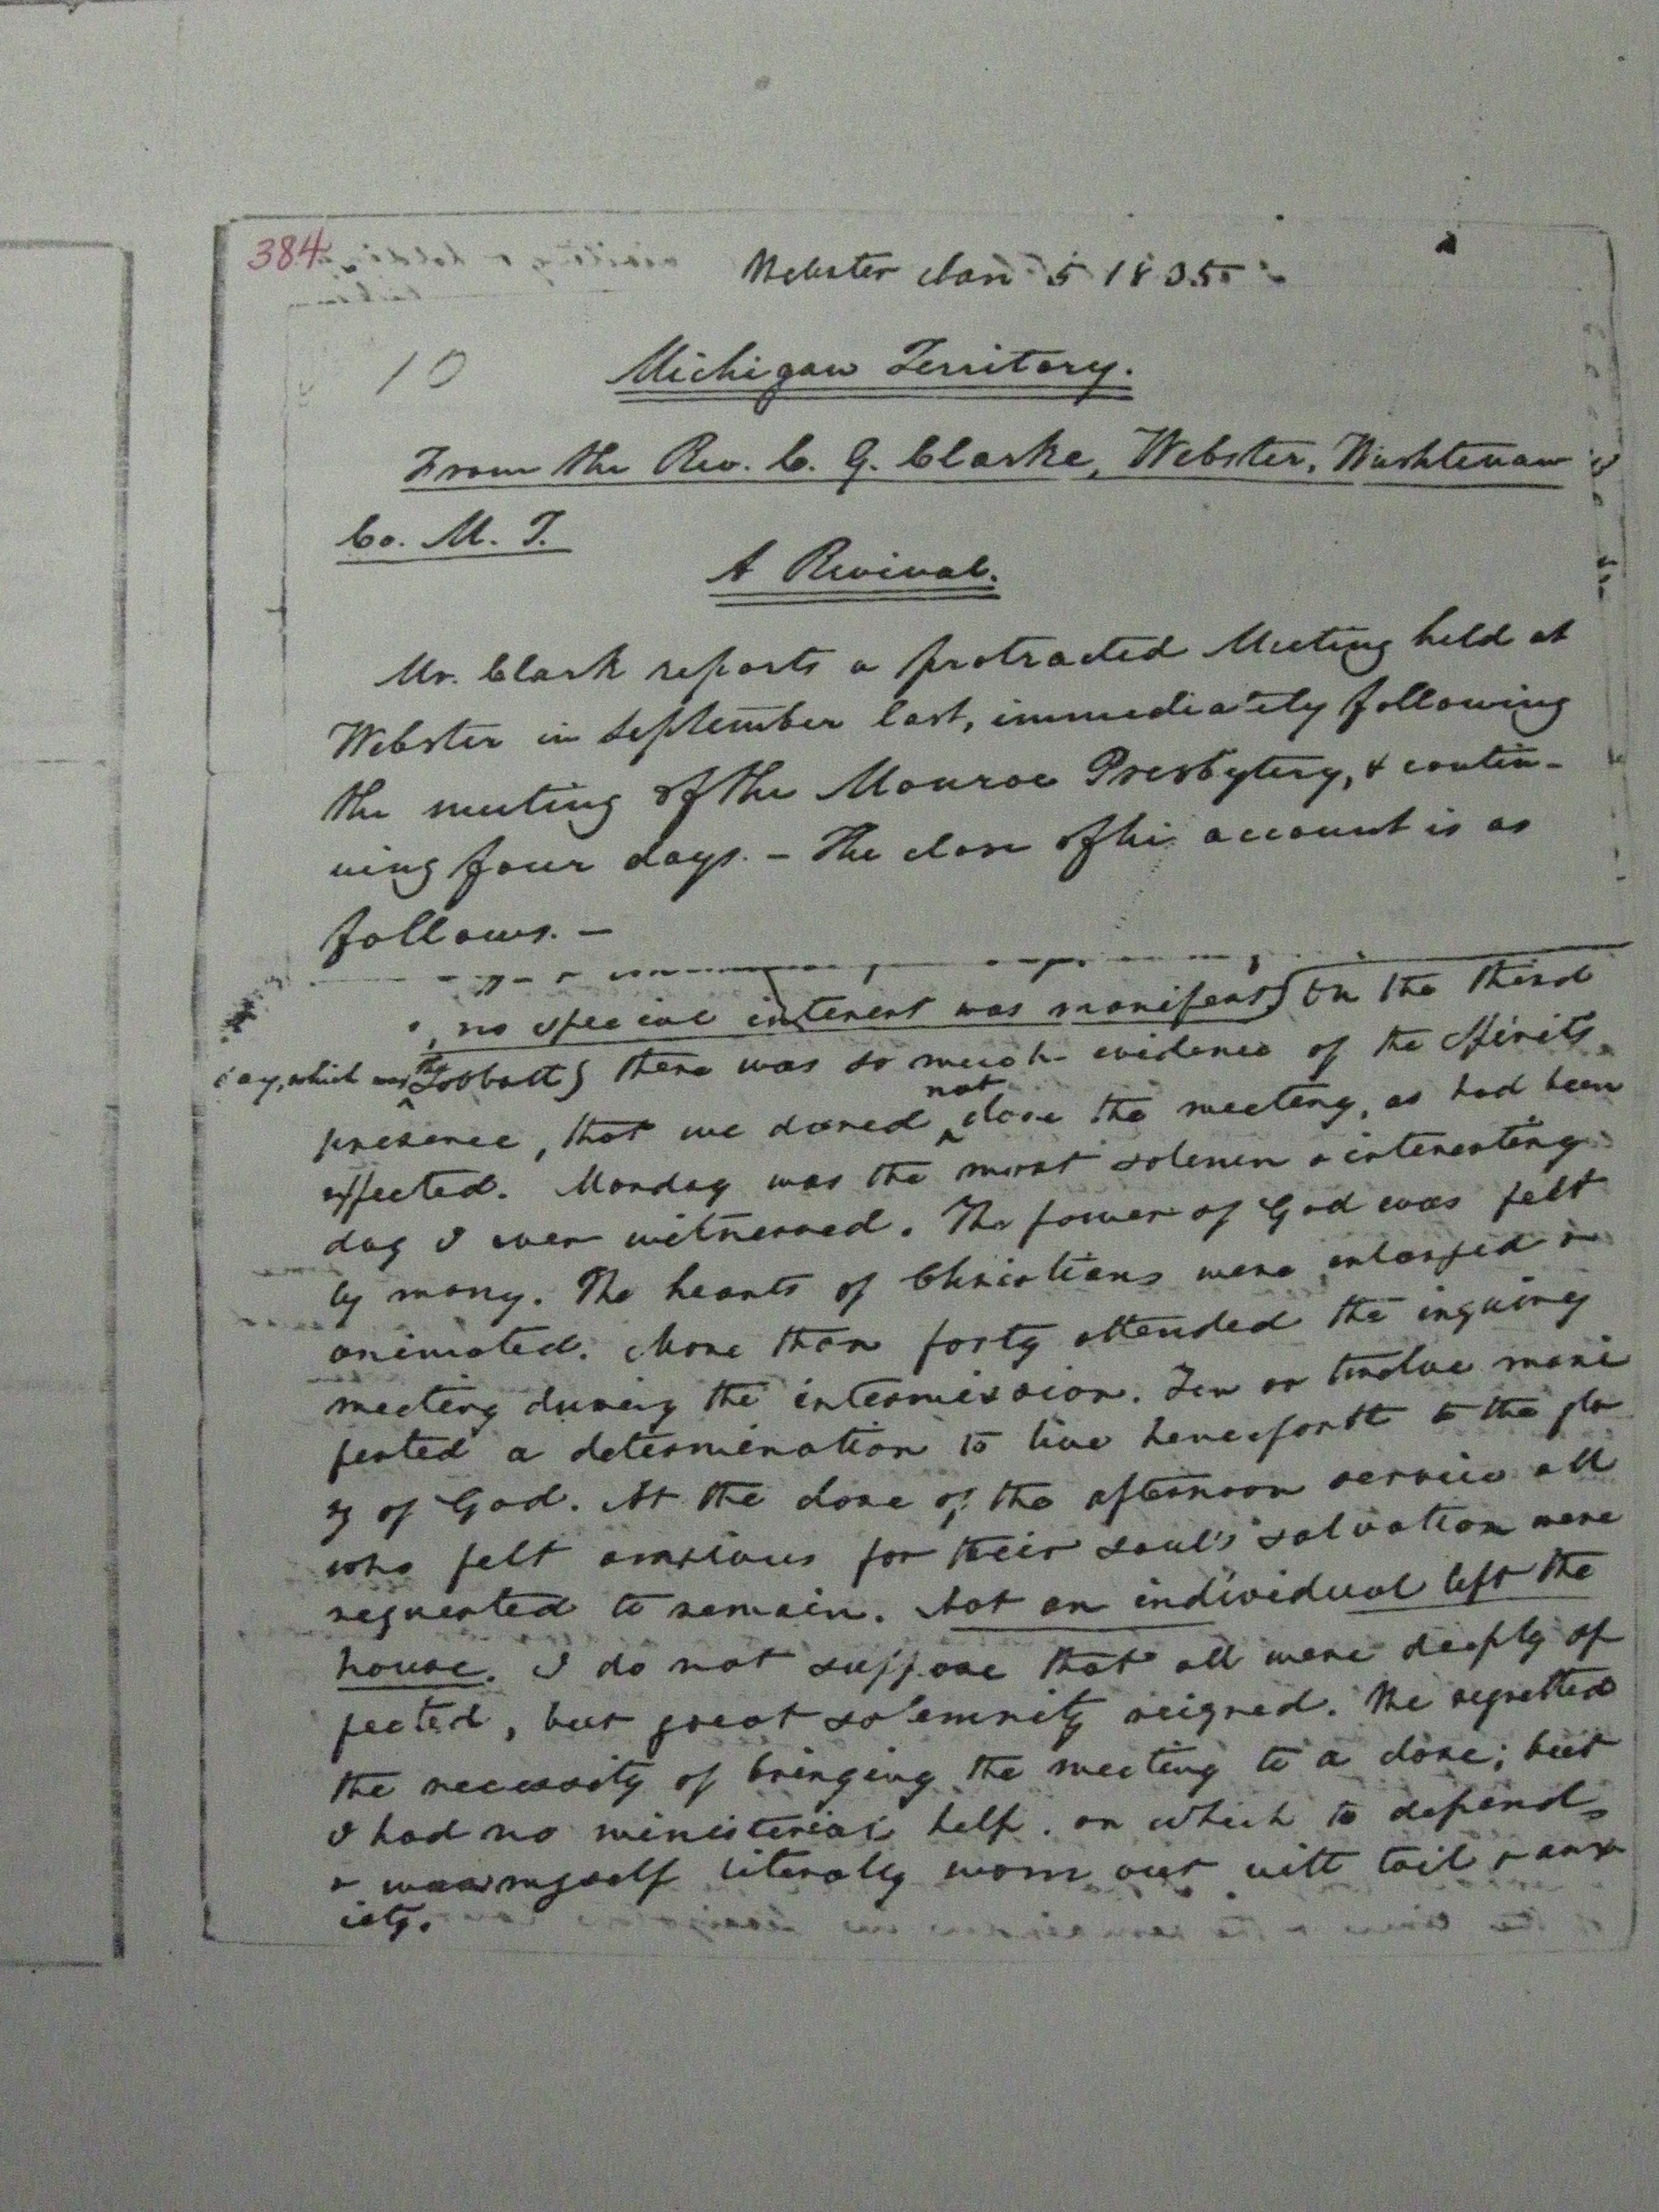 384
Webster Jan 5 1835
10
Michigan Territory.
From the Rev. C. G. Clarke, Webster, Washtenaw
Co. M. T.
A Revival.
Mr. Clark reports a protracted Meeting held at
Webster in September last, immediately following
the meeting of the Monroe Presbytery, & contin-
uing four days. - The close of his account is as
follows. -
, no special interest was manifest) On the third
day, which was the Sobbath) there was so much evidence of the Spirits
presence, that we dared not close the meeting, as had been
expected. Monday was the most solemn & interesting
day I ever witnessed. The power of God was felt
by many. The hearts of Christians were enlarged &
animated. More than forty attended the inquiry
meeting during the intermission. Ten or twelve mani
fested a determination to live henceforth to the glo
ry of God. At the close of the afternoon service all
who felt anxious for their soul's salvation were
requested to remain. Not an individual left the
house. I do not suppose that all were deeply af
fected, but great solemnity reigned. We regretted
the necessity of bringing the meeting to a close; but
I had no ministerial help on which to depend,
& was myself literally worn out with toil & anx
iety.